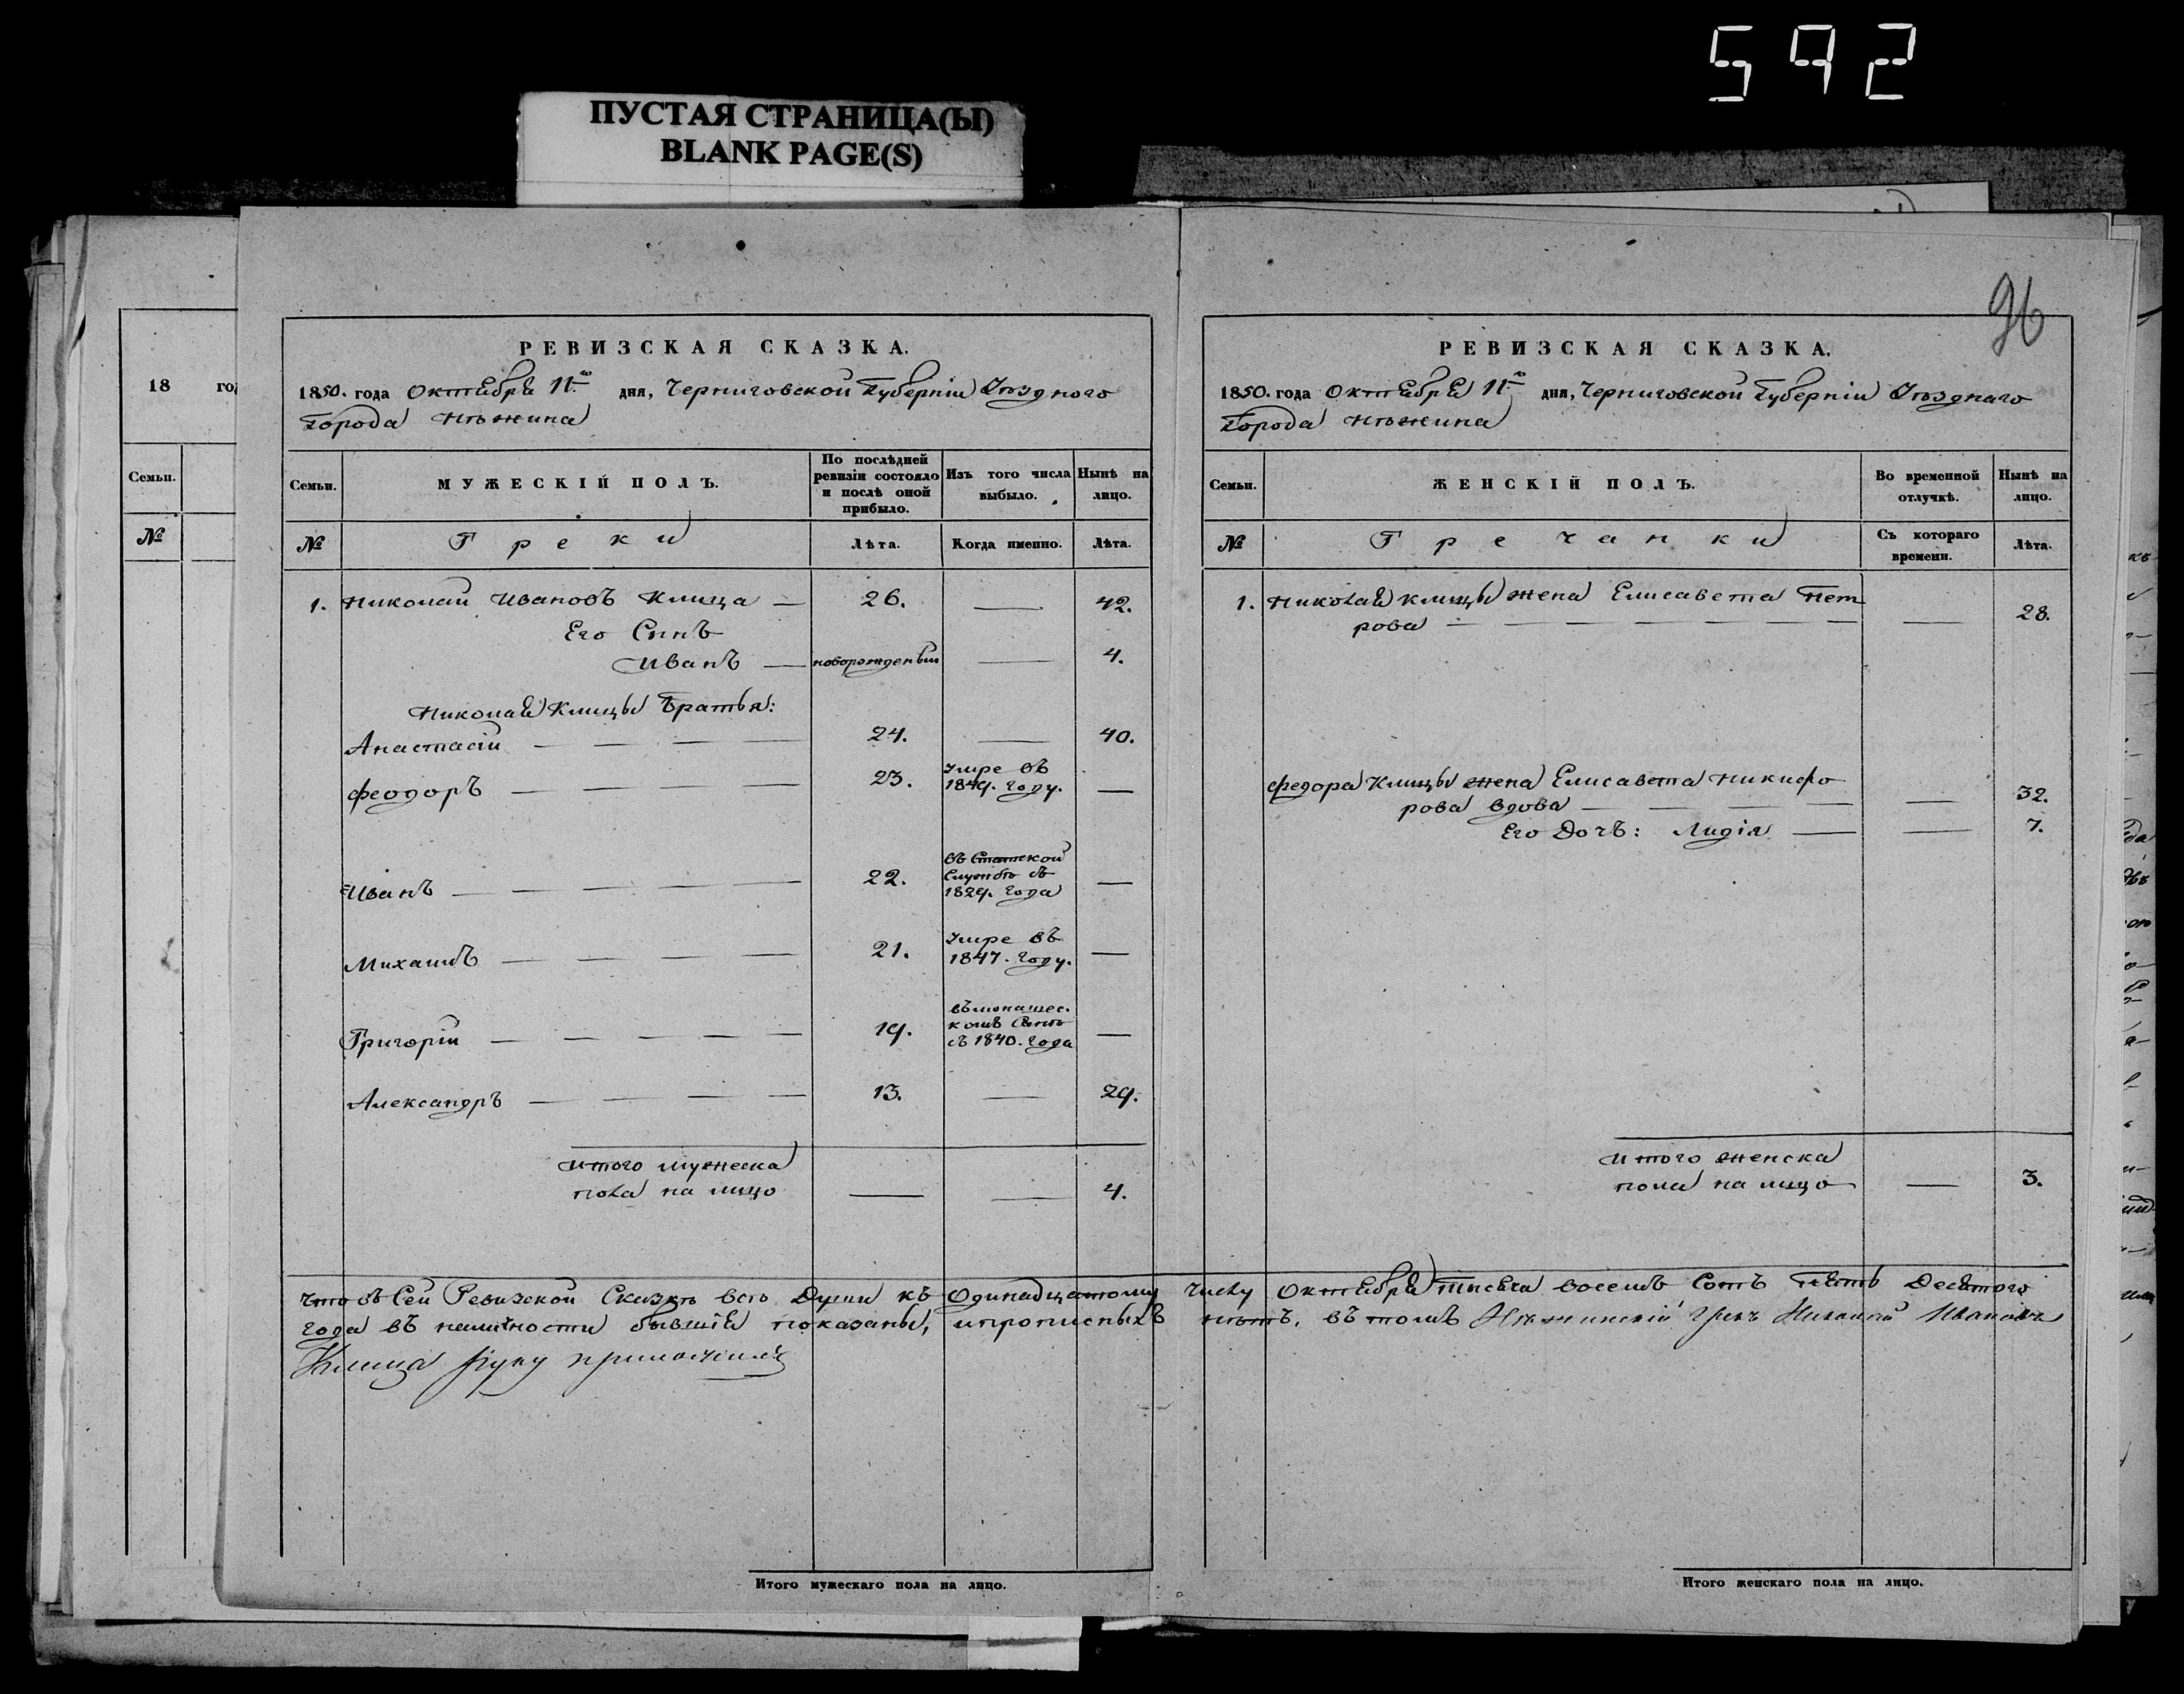 592
ПУСТАЯ СТРАНИЦА(Ы)
BLANK PAGE(S)
18 год
Семьи.
№
РЕВИЗСКАЯ СКАЗКА.
1850. года Октября 11го дня, Черниговской Губерніи Уѣздного
Города Нѣжина
Семьи.
МУЖЕСКІЙ ПОЛЪ.
По послѣдней ревизіи состояло и послѣ оной прибыло.
Изъ того числа выбыло.
Нынѣ на лицо.
№
Греки
Лѣта.
Когда именно.
Лѣта.
1. Николай Ивановъ Клица — 26. — 42.
Его Сынъ
Иванъ — новорожденый — 4.
Николая Клицы Братья:
Анастасій — — — — 24. — 40.
Феодоръ — — — — 23. Умре въ 1849. Году. —
Иванъ — — — — 22. въ Статской Службѣ съ 1829. Года —
Михаилъ — — — — 21. Умре въ 1847. Году. —
Григорій — — — — 19. въ монашес. комъ съ 1840. Года —
Александръ — — — — 13. — 29.
Итого мужеска
пола на лицо — — 4.
Итого мужескаго пола на лицо.
96
РЕВИЗСКАЯ СКАЗКА.
1850. года Октября 11го дня, Черниговской Губерніи Уѣзднаго
Города Нѣжина
Семьи.
ЖЕНСКІЙ ПОЛЪ.
Во временной отлучкѣ.
Нынѣ на лицо.
№
Гречанки
Съ котораго времени.
Лѣта.
1. Николая Клицы жена Елисавета Пет
рова — — — — — — — 28.
Федора Клицы жена Елисавета Никифо
рова вдова — — — — — 32.
Его Дочь: Лидія — — 7.
Итого женска
пола на лицо — 3.
Что въ Сей Ревизской Сказкѣ всѣ Души къ Одинадцатому Числу Октября тысяча восемь Сотъ пять Десятого
Года въ наличности бывшія показаны, и прописныхъ нѣтъ, въ томъ Нѣжинскій Грекъ Николай Ивановъ
Клица руку приложилъ
Итого женскаго пола на лицо.